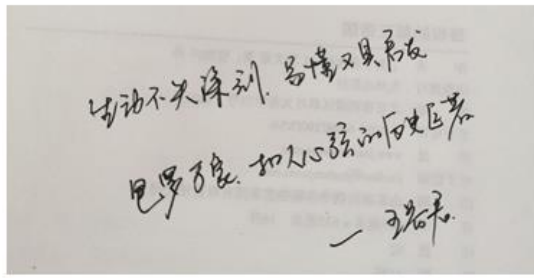 生动不失深刻.易懂又具启发
包罗万象.扣人心弦的历史巨著
— 王